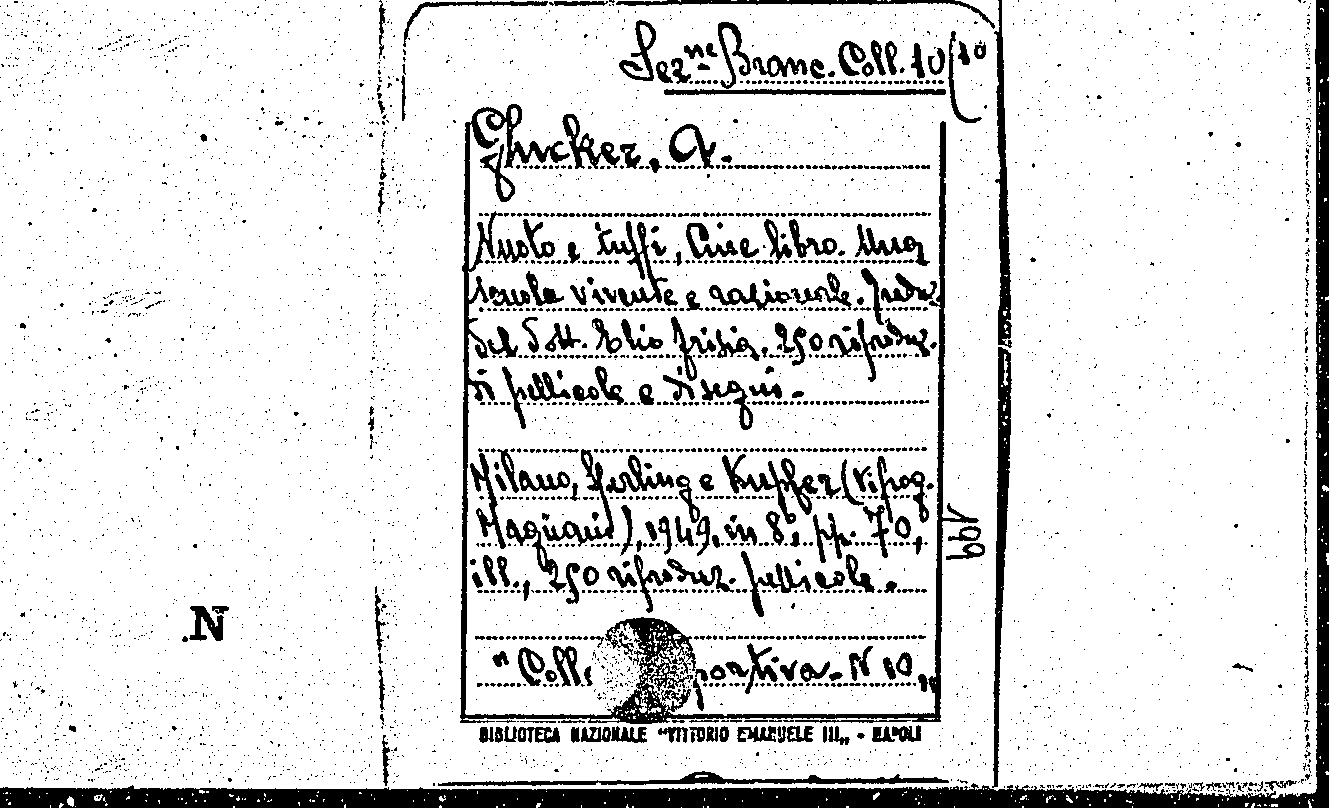 Sez.ne Branc. Coll. 10 (10
Ghucker, A.
Nuoto e tuffi, Cine-libro. Una
scuola vivente e razionale. Traduz.
del Dott. Elio Frisia. 250 riproduz.
di pellicole e disegni.-
Milano, Sperling e Kupfer (tipog.
Magnani), 1949, in 8°, pp. 70,
ill., 250 riproduz. pellicole.
"Coll portiva - N 10 "
BIBLIOTECA NAZIONALE "VITTORIO EMANUELE III„ - NAPOLI
N